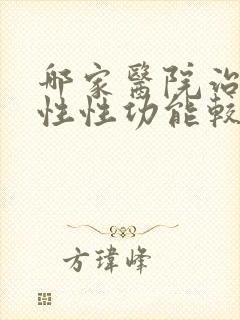 哪家醫院治
性性功能較
方瑋峰